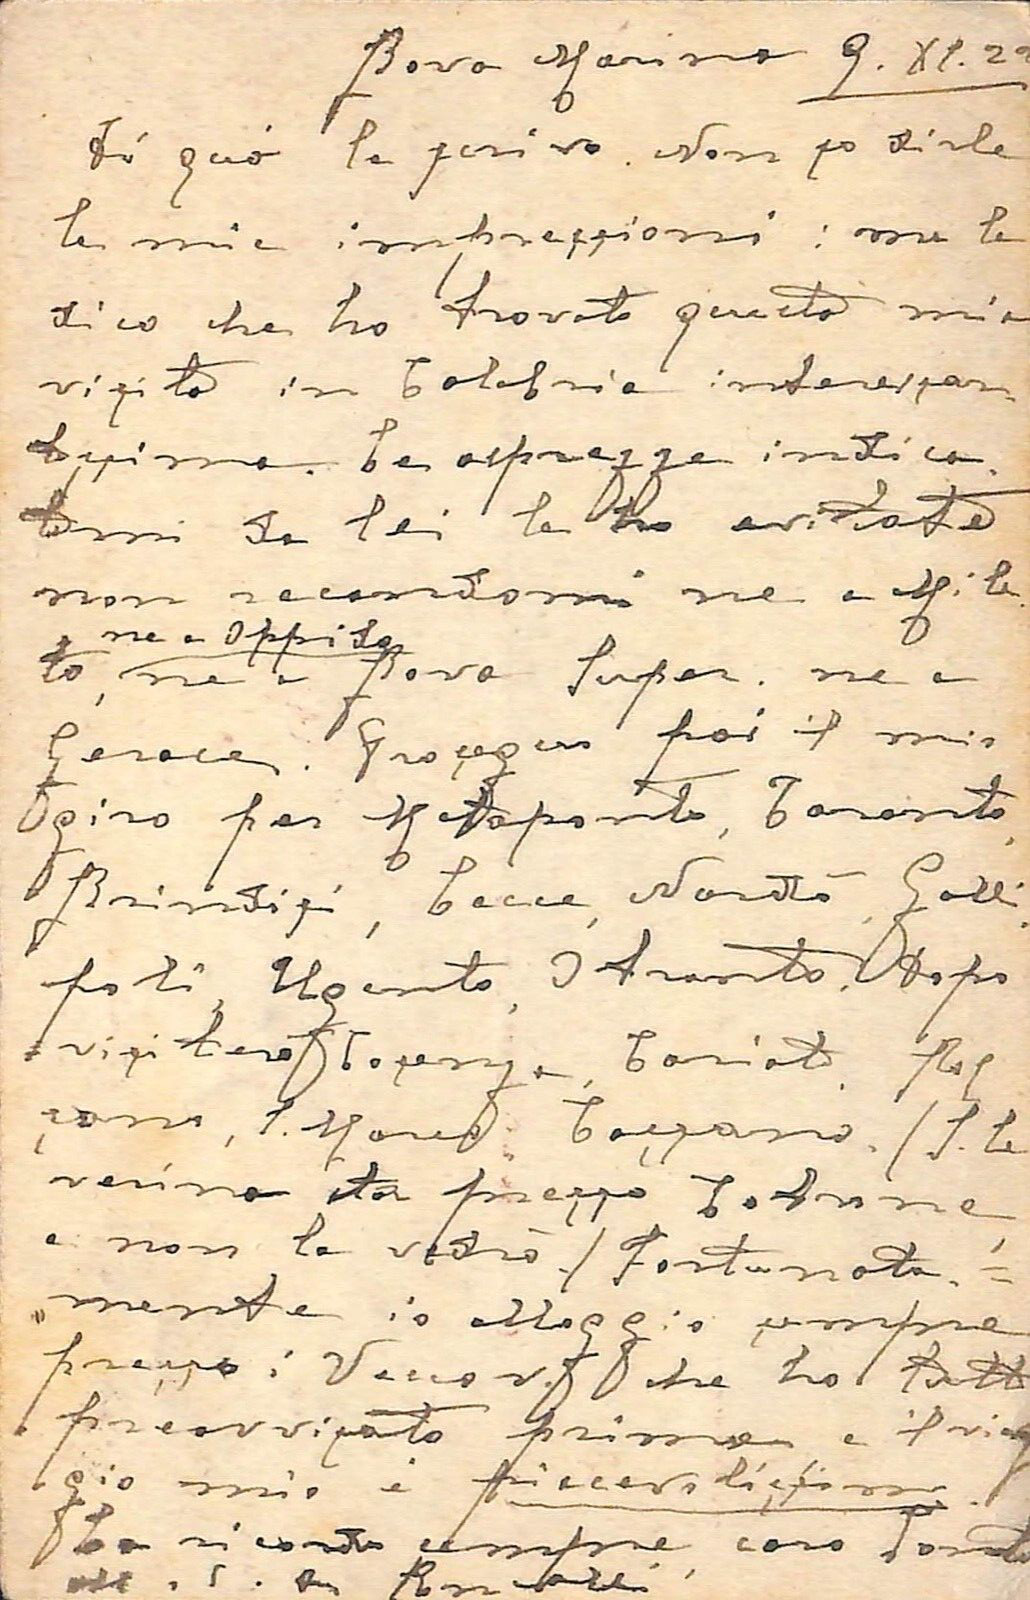 Bova Marina 9. XI. 22
Di quà le scrivo. Non so dirle
le mie impressioni: ma le
dico che ho trovato questa mia
visita in Calabria interessan-
tissima. Le asprezze indica-
temi da lei le ho evitate
non recandomi ne a Mile-
ne a Oppido
to, ne a Bova Super. ne a
Gerace. Proseguo poi il mio
giro per Metaponto, Taranto,
Brindisi, Lecce, Nardò, Galli-
poli, Ugento, Otranto. Dopo
visiterò Cosenza, Cariati, Ros-
sano, S. Marco, Cassano. / S. Se
verina sta presso Cotrone,
e non la vedrò. / Fortunata-
mente io alloggio sempre
presso i Vescovi che ho tutti
preavvisato prima e il viag
gio mio è piacevolissimo.
La ricordo sempre, caro
Roncalli